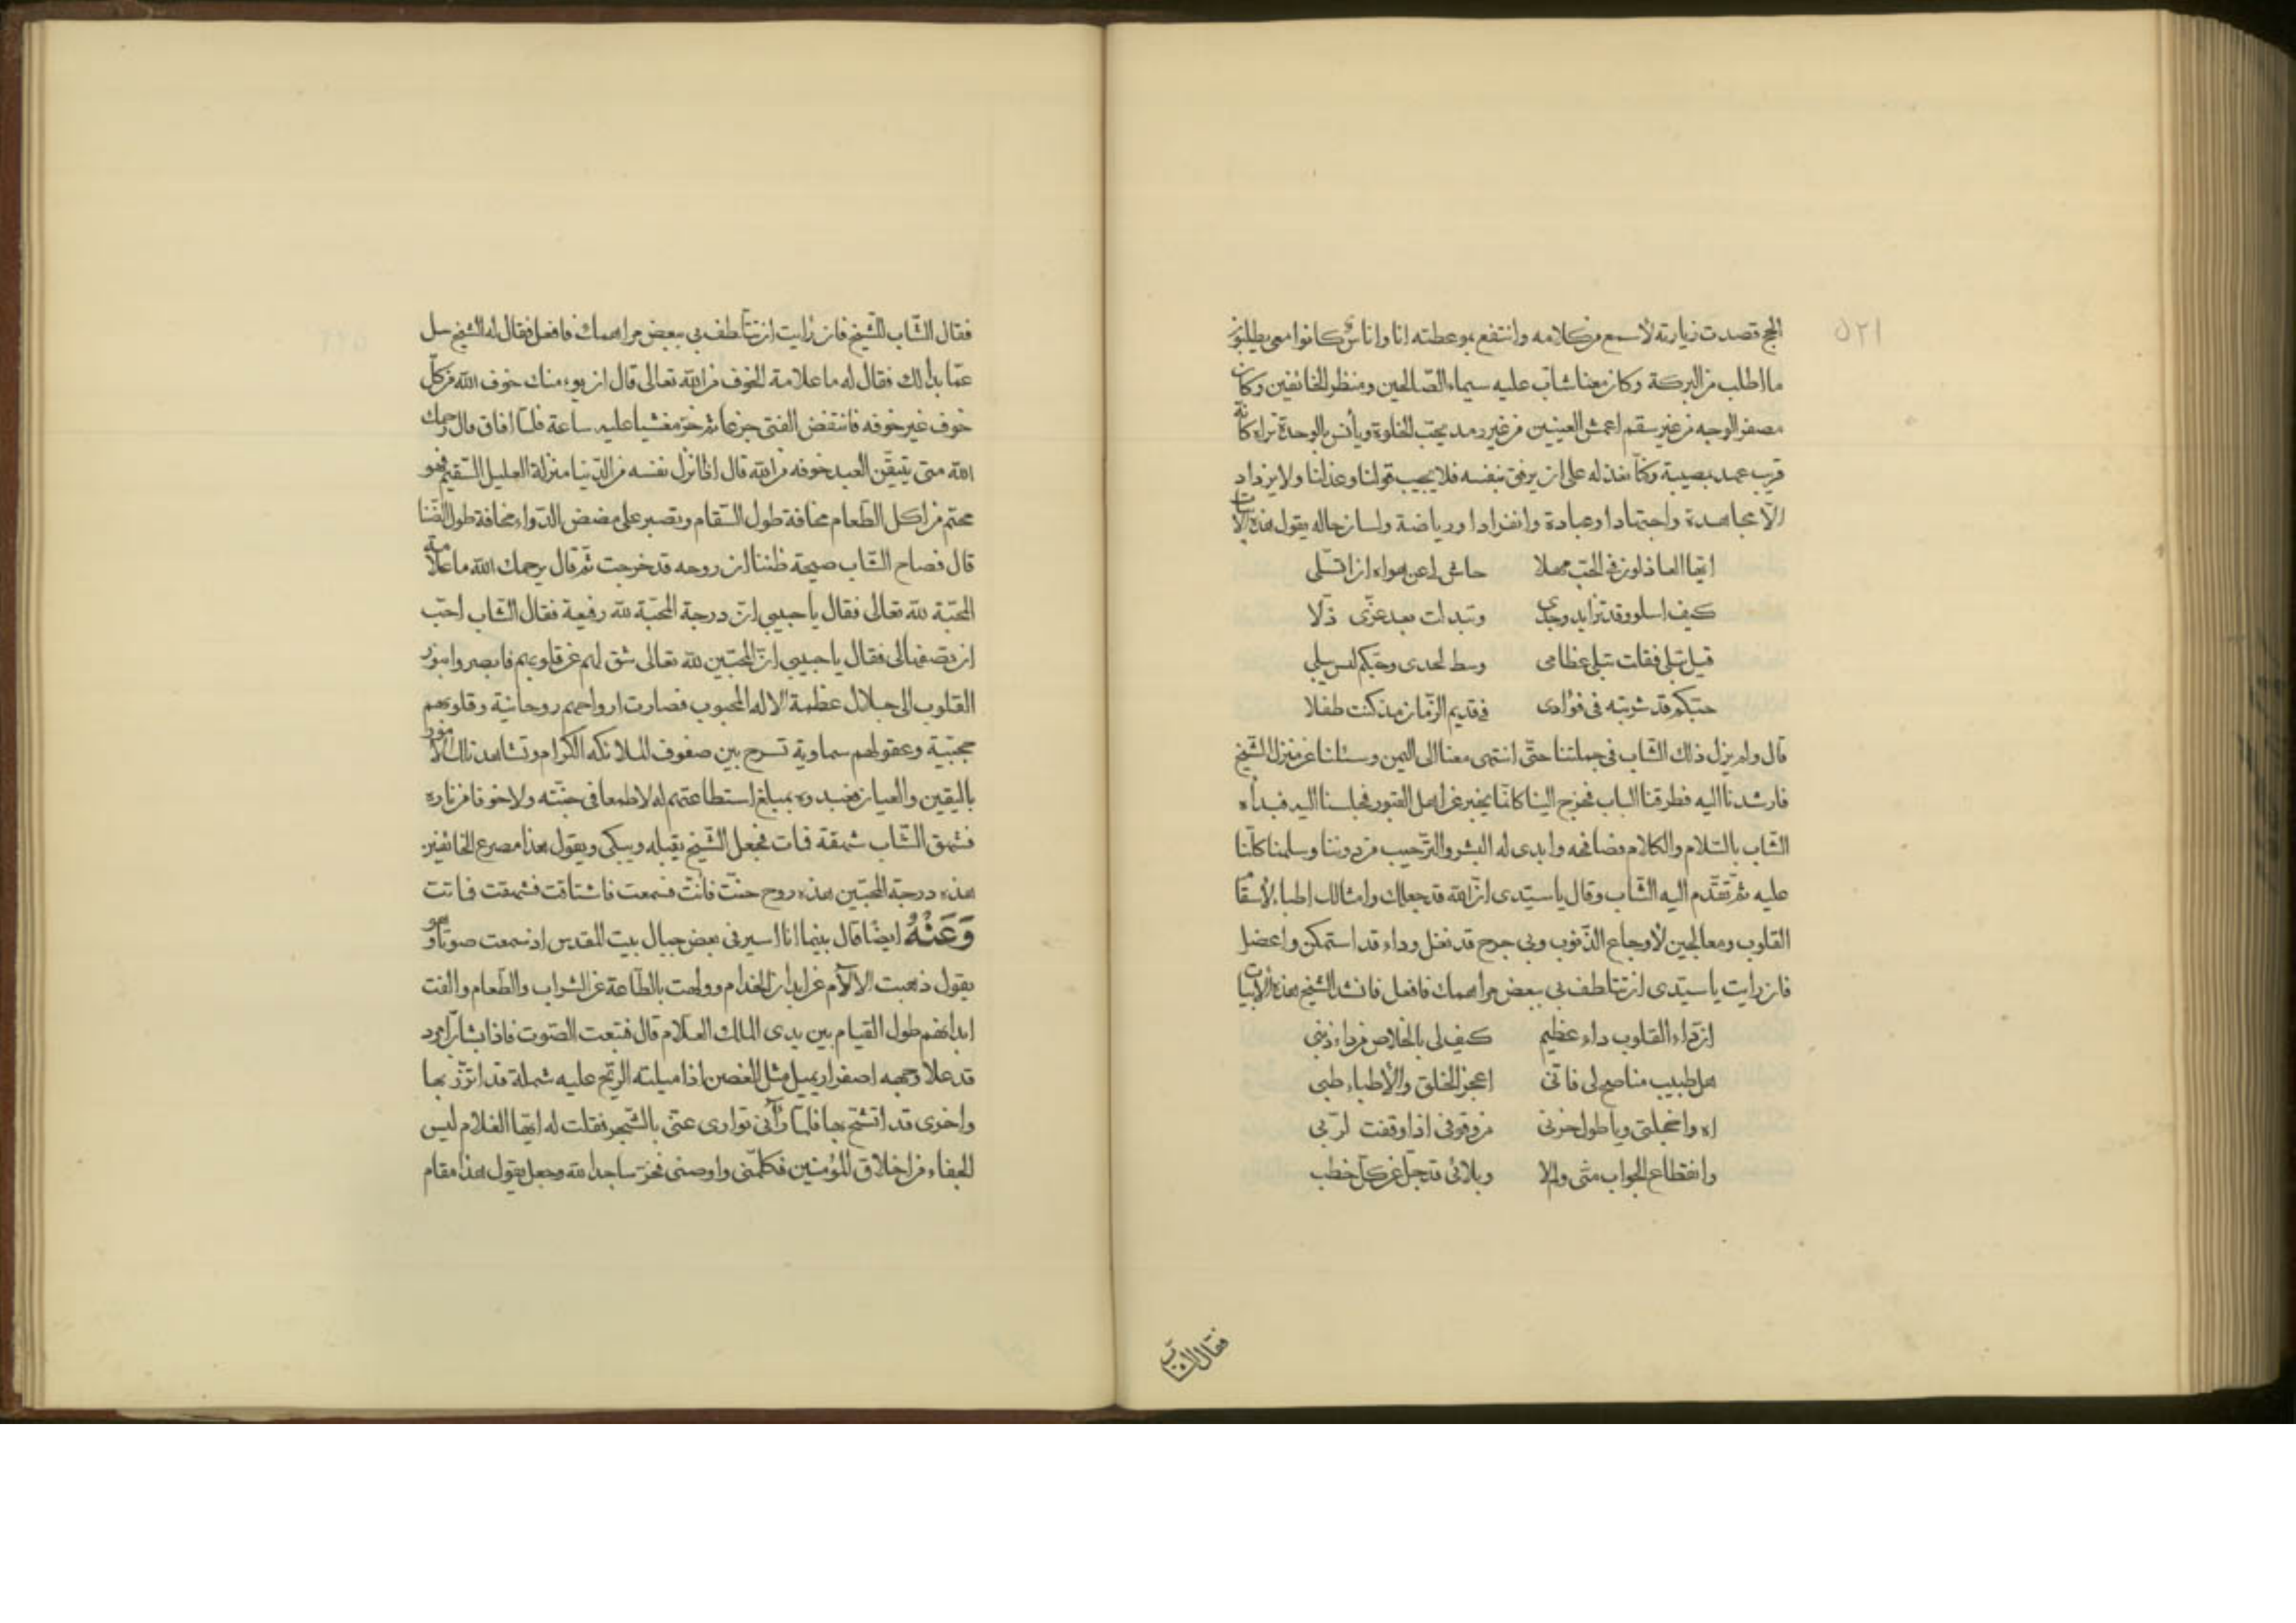 ٥٢١
الحج قصدت زيارته لأسمع من كلامه وانتفع بموعظته انا واناس كانوا معى يطلبون
ما اطلب من البركة وكان معنا شاب عليه سيماء الصالحين ومنظر الخائفين وكان
مصفر الوجه من غير سقم اعمش العينين من غير رمد يحب الخلوة ويأنس بالوحدة تراه كأنه
قريب عهد بمصيبة وكنّا نعذله على ان يرفق بنفسه فلا يجيب قولنا وعذلنا ولا يزداد
الّا مجاهدة واجتهادا وعبادة وانفرادا ورياضة ولسان حاله يقول هذه الابيات
ايّها العاذلون فى الحبّ مهلا حاش لى عن هواه ان اتسلّى
كيف اسلو وقد تزايد وجدى وتبدلت بعد عزّى ذلّا
قيل تبلى فقلت تبلى عظامى وسط لحدى وحبّكم ليس يبلى
حبّكم قد شربته فى فؤادى فى قديم الزّمان مذ كنت طفلا
قال ولم يزل ذلك الشّاب فى جملتنا حتّى انتهى معنا الى اليمن وسئلنا عن منزل الشّيخ
فارشدنا اليه فطرقنا الباب فخرج الينا كانّما يخبر عن اهل القبور فجلسنا اليه فبدأه
الشّاب بالسّلام والكلام فصافحه وابدى له البشر والترّحيب من دوننا وسلمنا كلّنا
عليه ثمّ تقدّم اليه الشّاب وقال يا سيّدى انّ الله قد جعلك وامثالك اطباء لأسقام
القلوب ومعالجين لأوجاع الذّنوب وبى جرح قد نغل وداء قد استمكن واعضل
فان رايت يا سيّدى ان تتلطف بى ببعض مراهمك فافعل فانشد الشّيخ هذه الأبيات
انّ داء القلوب داء عظيم كيف لى بالخلاص من داء ذنبى
هل طبيب مناصح لى فانّى اعجز الخلق والأطباء طبى
اه واخجلتى ويا طول حزنى من وقوفى اذا وقفت لربّى
وانقطاع الجواب منّى ولا وبلائى قد جل عن كلّ خطب
فقال الشاب
فقال الشّاب للشّيخ فان رايت ان تتلطف بى ببعض مراهمك فافعل فقال له الشّيخ سل
عمّا بدا لك فقال له ما علامة الخوف من الله تعالى قال ان يؤمنك خوف الله من كلّ
خوف غير خوفه فانتفض الفتى جزعا ثم خرّ مغشيا عليه ساعة فلمّا افاق قال رحمك
الله متى يتيقّن العبد خوفه من الله قال اذا انزل نفسه من الدّنيا منزلة العليل السّقيم فهو
محتم من اكل الطّعام مخافة طول السّقام ويصبر على مضض الدّواء مخافة طول الضّنا
قال فصاح الشّاب صيحة ظننا ان روحه قد خرجت ثمّ قال يرحمك الله ما علامة
المحبّة لله تعالى فقال يا حبيبى انّ درجة المحبّة لله رفيعة فقال الشّاب احبّ
ان تصفها لى فقال يا حبيبى انّ المحبّين لله تعالى شق لهم عن قلوبهم فابصروا بنور
القلوب الى جلال عظمة الاله المحبوب فصارت ارواحهم روحانية وقلوبهم
حجبيّة وعقولهم سماوية تسرح بين صفوف الملائكه الكرام وتشاهد تلك الامور
باليقين والعيان فعبدوه بمبلغ استطاعتهم له لا طمعا فى جنّته ولا خوفا من ناره
فشهق الشّاب شهقة فمات فجعل الشّيخ يقبله ويبكى ويقول هذا مصرع الخائفين
هذه درجة المحبّين هذه روح حنّت فانّت فسمعت فاشتاقت فشهقت فماتت
وَعَنْهُ ايضًا قال بينما انا اسير فى بعض جبال بيت المقدس اذ سمعت صوتا وهو
يقول ذهبت الالآم عن ابدان الخدام وولهت بالطّاعة عن الشراب والطّعام والفت
ابدانهم طول القيام بين يدى الملك العلّام قال فتبعت الصّوت فاذا بشابّ امرد
قد علا وجهه اصفرار يميل مثل الغصن اذا ميلته الرّيح عليه شملة قد اتزّر بها
واخرى قد اتّشح بها فلمّا رآنى توارى عنّى بالشّجر فقلت له ايّها الغلام ليس
الجفاء من اخلاق المؤمنين فكلّمنى واوصنى فخرّ ساجدا لله وجعل يقول هذا مقام